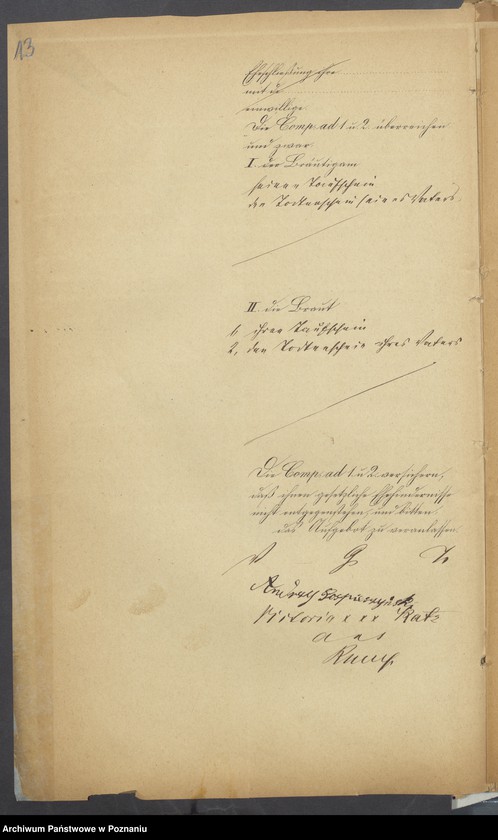 13
Eheschließung ihre
mit de
einwillige
Die Comp. ad 1 u 2 überreichen
und zwar:
I. der Bräutigam
seinen Taufschein
den Todtenschein seines Vaters.
II. die Braut
1, ihren Taufschein
2, den Todtenschein ihres Vaters
Die Comp. ad 1 u 2 versichern,
daß ihnen gesetzliche Ehehindernisse
nicht entgegenstehen, und bitten,
das Aufgebot zu veranlassen.
V G U
Andrzej
Victoria x x x Katz
a u s
Archiwum Państwowe w Poznaniu